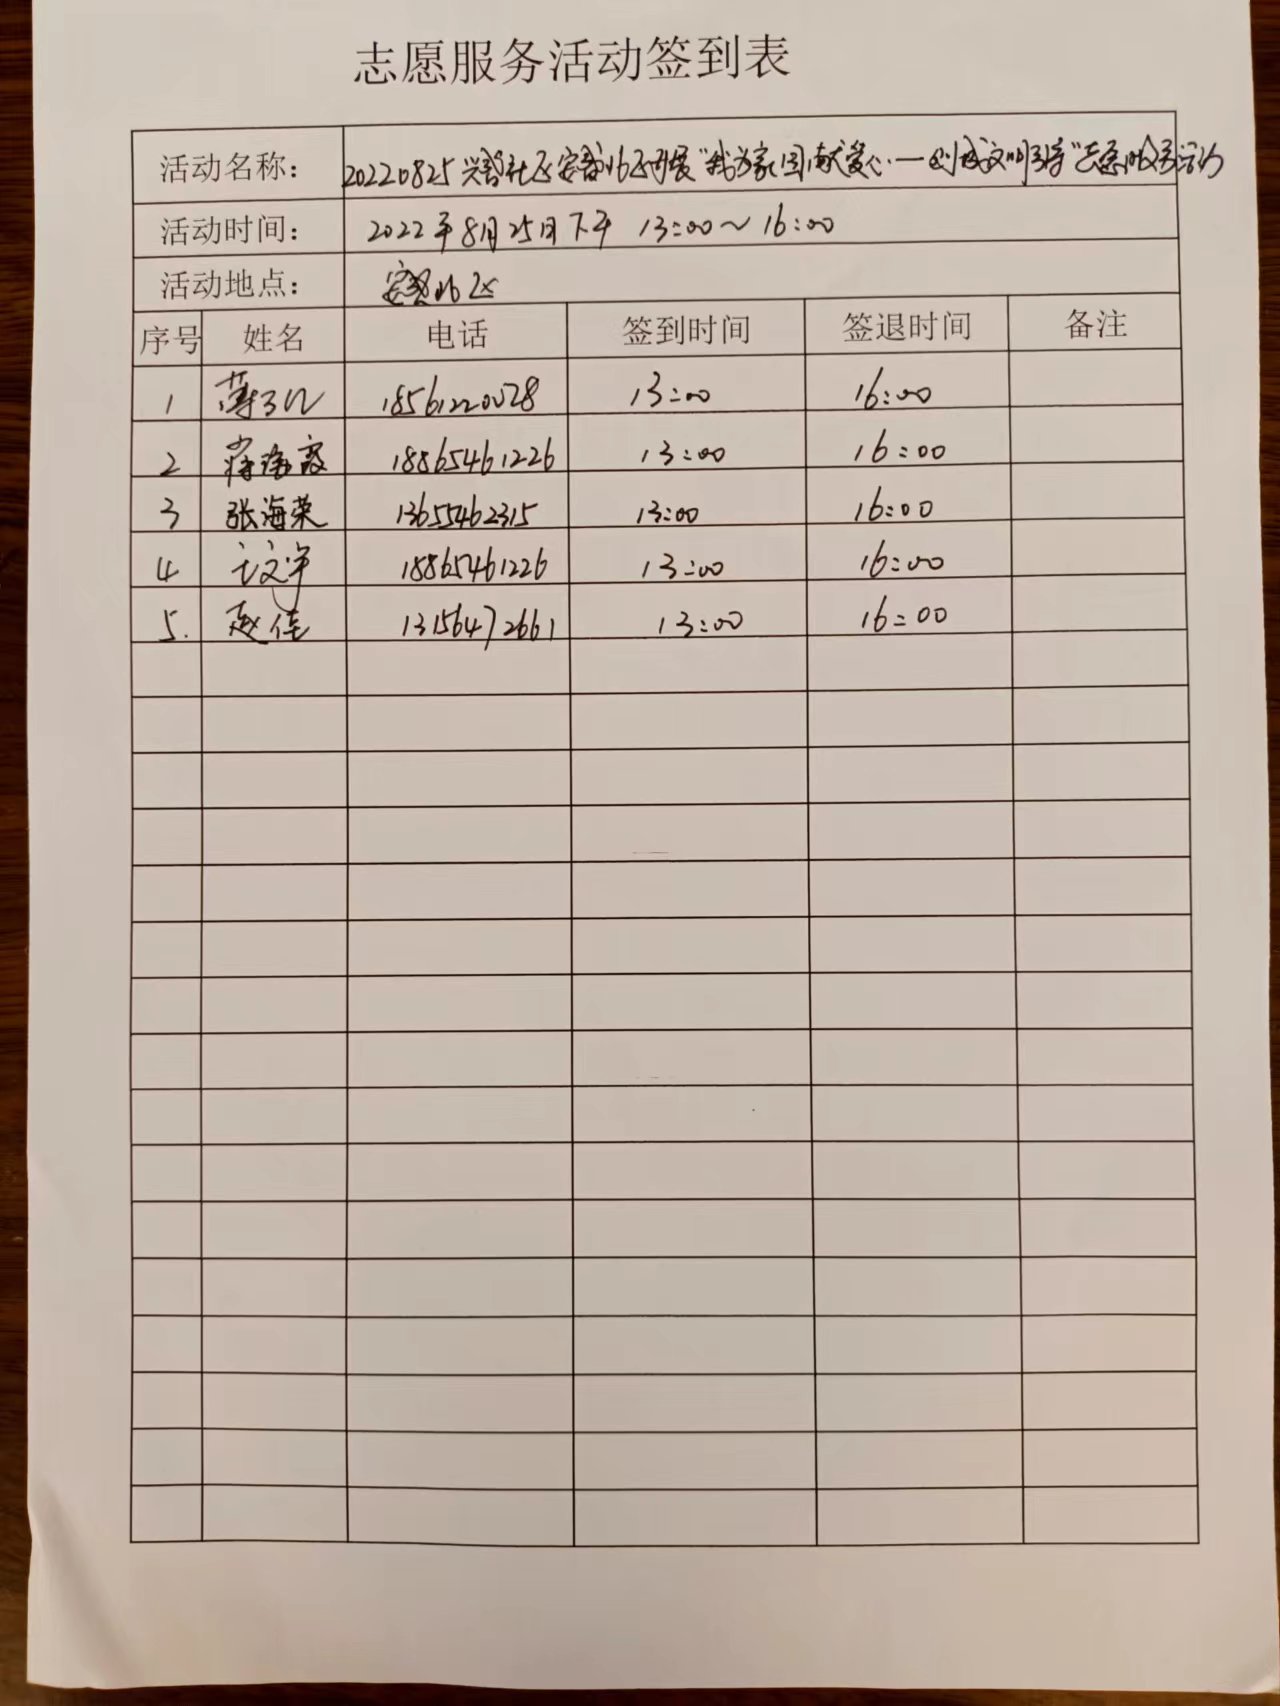 志愿服务活动签到表
活动名称： 20220825 社区 北区开展“我为家园献爱心——创城文明引导”志愿服务活动
活动时间： 2022年8月25日下午 13:00～16:00
活动地点： 北区
序号 姓名 电话 签到时间 签退时间 备注
1 13:00 16:00
2 18865461226 13:00 16:00
3 张海荣 13655462315 13:00 16:00
4 18865461226 13:00 16:00
5. 赵佳 13156472661 13:00 16:00